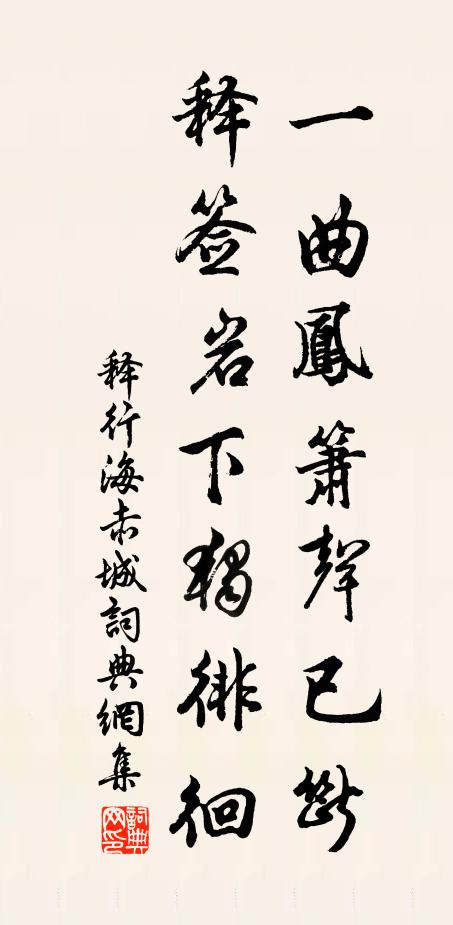 一曲鳳簫聲已斷
释签岩下獨徘徊
释行海赤城詞典網集
詞典網印